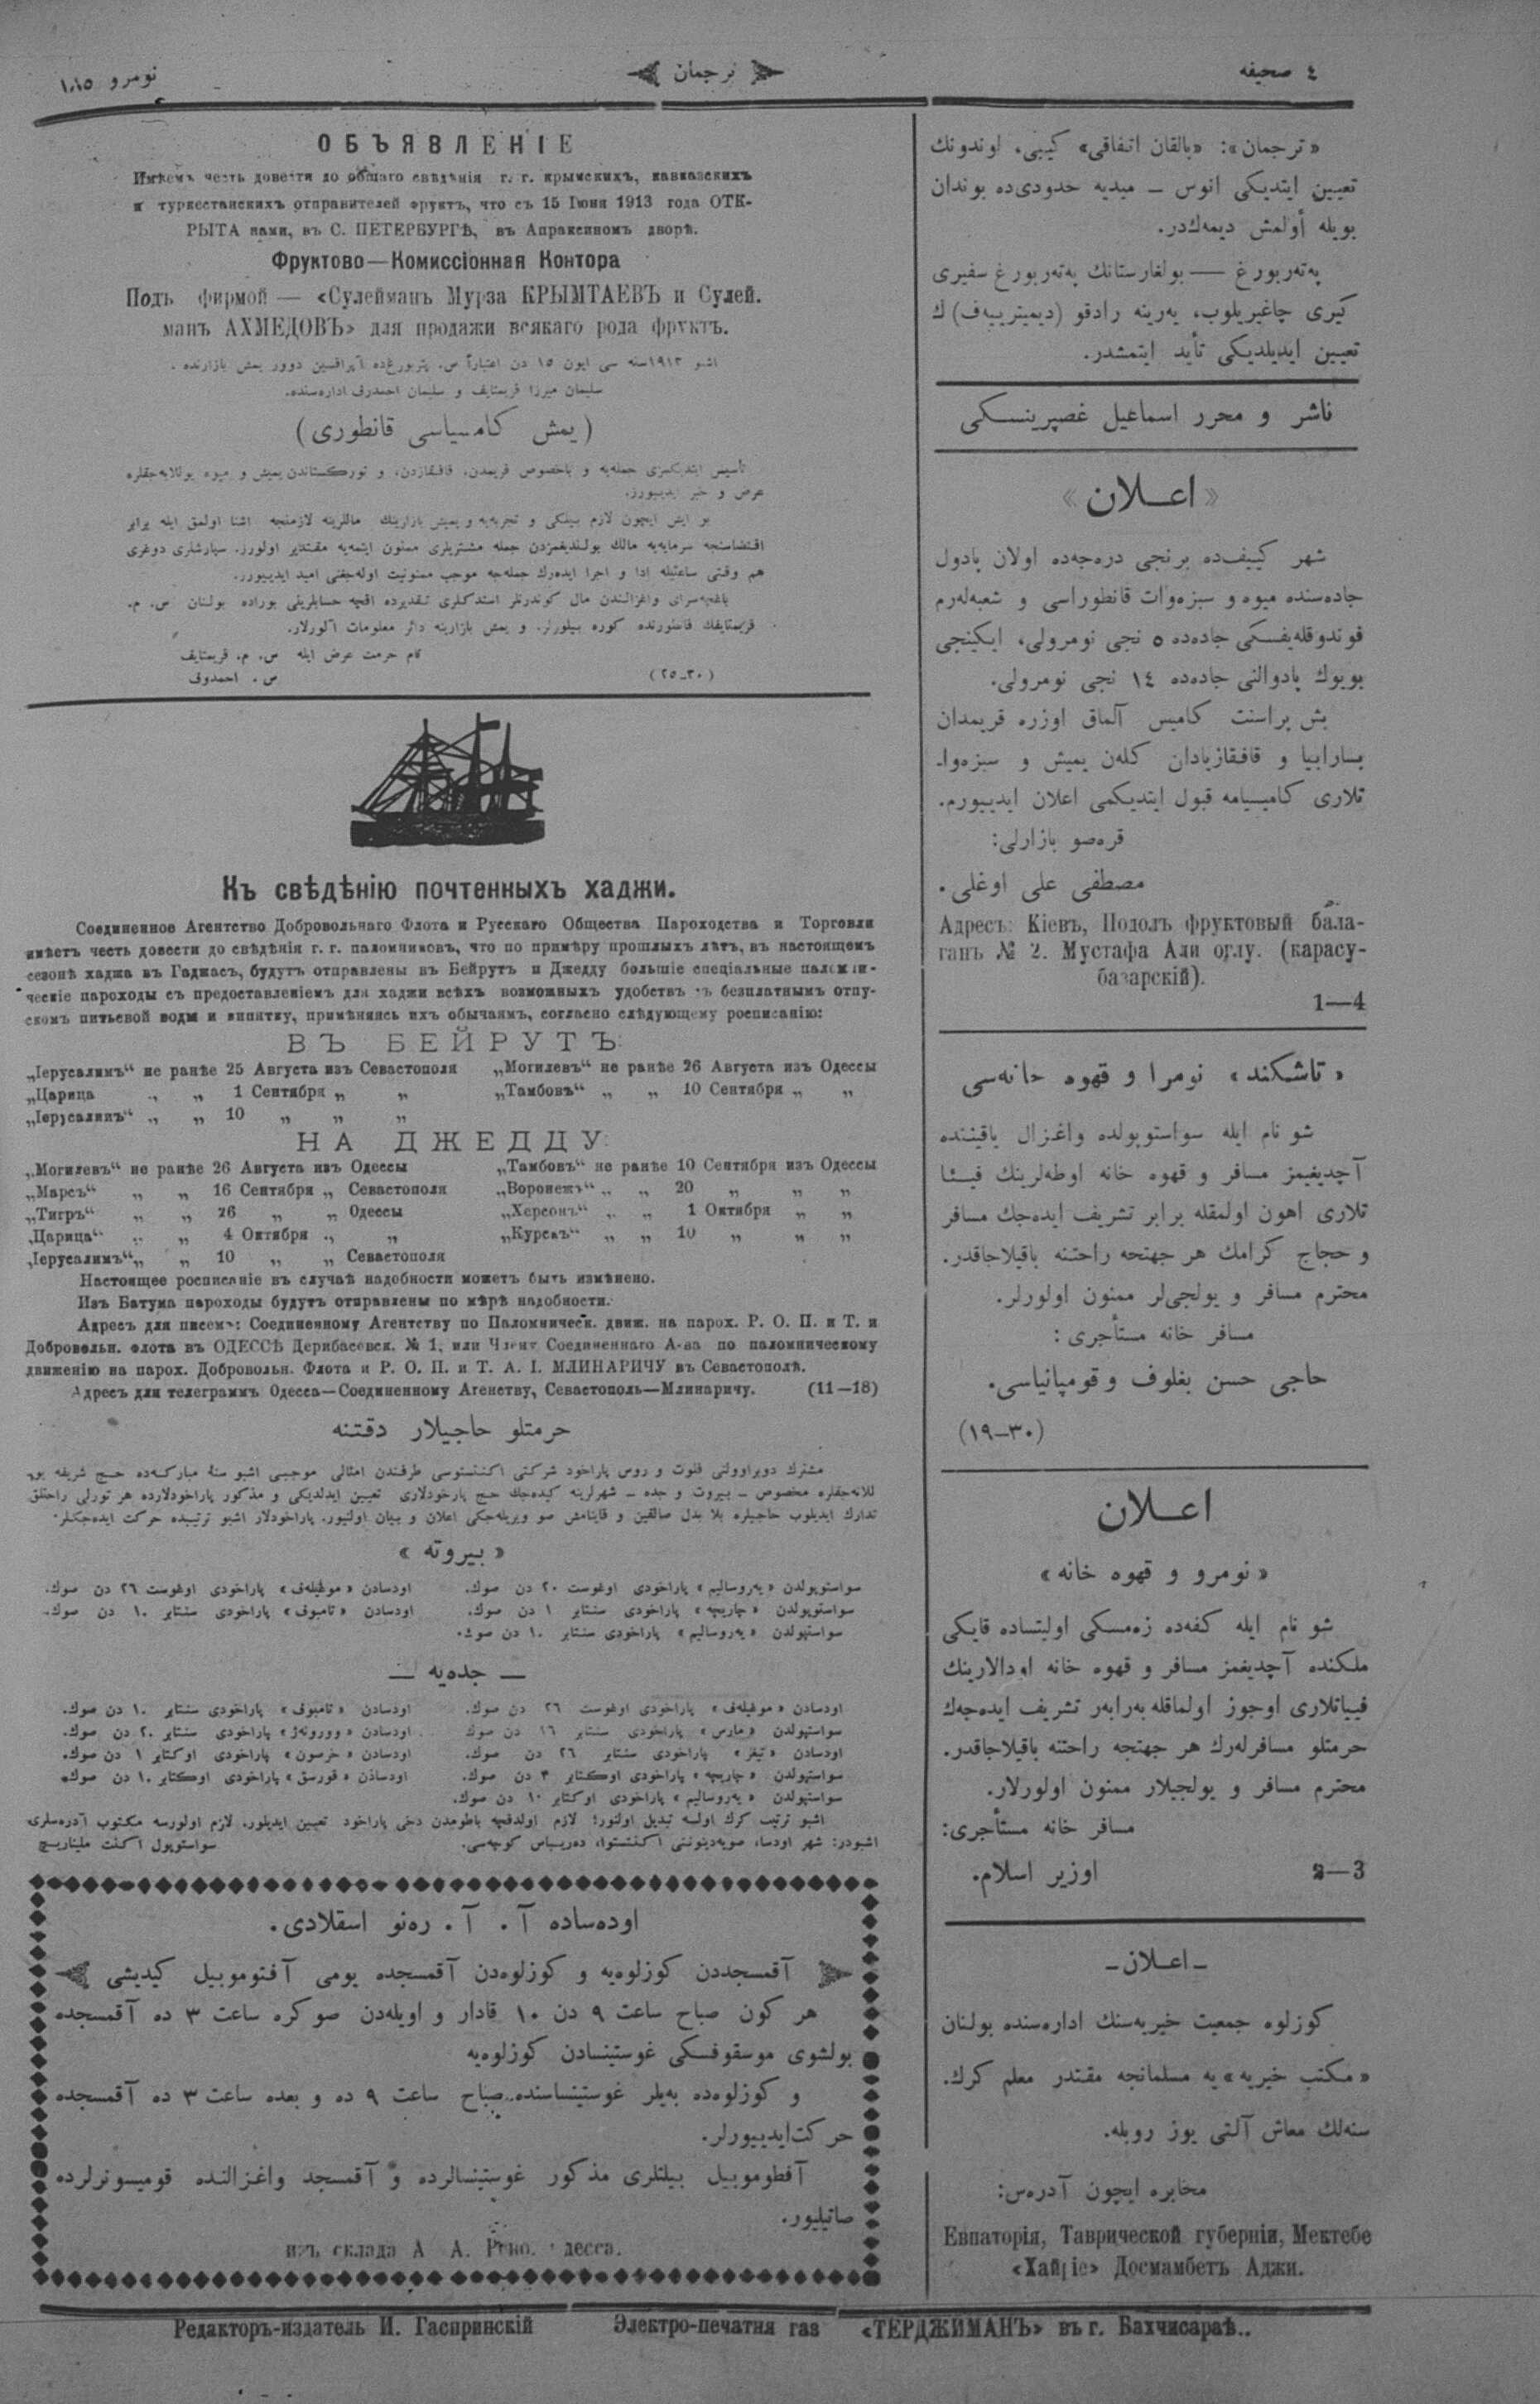 ٤ صحیفه
ترجمان
نومرو ١٨٥
«ترجمان»: «بالقان اتفاقی» کیبی، اوندونك
تعیین ایتدیکی انوس – میدیه حدودی‌ده بوندان
بویله أولمش دیمه‌ك‌در.
په‌ته‌ربورغ — بولغارستانك په‌ته‌ربورغ سفیری
چاغیریلوب، یه‌رینه رادقو
تعیین ایدیلدیکی تأید ایتمشدر.
ناشر و محرر اسماعیل غصپرینسکی
«اعلان»
شهر کییف‌ده برنجی درجه‌ده اولان پادول
جاده‌سنده میوه و سبزه‌وات قانطوراسی و شعبه‌لەرم
جاده‌ده ٥ نجی نومرولی، ایکینجی
بویوك پادوالنی جاده‌ده ١٤ نجی نومرولی.
بش پراسنت کامیس آلماق اوزره قریمدان
بسارابیا و قافقازیادان کله‌ن یمیش و سبزه‌وا-
تلاری کامیسیامه قبول ایتدیکمی اعلان ایدییورم.
قره‌صو بازارلی:
مصطفی علی اوغلی.
Адресъ: Кіевъ, Подолъ фруктовый бала-
ганъ № 2. Мустафа Али оглу. (карасу-
базарскій).
1—4
«تاشکند» نومرا و قهوه خانه‌سی
شو نام ایله سواستوپولده واغزال یاقیننده
آچدیغیمز مسافر و قهوه خانه اوطه‌لرینك فیئا
تلاری اهون اولمقله برابر تشریف ایده‌جك مسافر
و حجاج کرامك هر جهتجه راحتنه باقیلاجاقدر.
محترم مسافر و یولجی‌لر ممنون اولورلر.
مسافر خانه مستأجری:
حاجی حسن بغلوف و قومپانیاسی.
(١٩–٣٠)
اعلان
«نومرو و قهوه خانه»
شو نام ایله کفه‌ده زه‌مسکی اولیتساده قایکی
ملکنده آچدیغمز مسافر و قهوه خانه اودالارینك
فییاتلاری اوجوز اولماقله به‌رابه‌ر تشریف ایده‌جه‌ك
حرمتلو مسافرله‌رك هر جهتجه راحتنه باقیلاجاقدر.
محترم مسافر و یولجیلار ممنون اولورلار.
مسافر خانه مستأجری:
اوزیر اسلام.
2—3
– اعلان –
کوزلوه جمعیت خیریه‌سنك اداره‌سنده بولنان
«مکتب خیریه»یه مسلمانجه مقتدر معلم کرك.
سنه‌لك معاش آلتی یوز روبله.
مخابره ایچون آدره‌س:
Евпаторія, Таврической губерніи, Мектебе
«Хайріе» Досмамбетъ Аджи.
ОБЪЯВЛЕНІЕ
Имѣемъ честь довести до общаго свѣдѣнія г. г. крымскихъ, кавказскихъ
и туркестанскихъ отправителей фруктъ, что съ 15 Іюня 1913 года ОТК-
РЫТА нами, въ С. ПЕТЕРБУРГѢ, въ Апраксиномъ дворѣ.
Фруктово—Комиссіонная Контора
Подъ фирмой — «Сулейманъ Мурза КРЫМТАЕВЪ и Сулей.
манъ АХМЕДОВЪ» для продажи всякаго рода фруктъ.
اشبو ١٩١٣ سنه سی ایون ١٥ دن اعتباراً س. پتربورغ‌ده آپراقسین دوور یمش بازارنده.
سلیمان میرزا قریمتایف و سلیمان احمدوف اداره‌سنده.
(یمش کامسیاسی قانطوری)
تأسیس ایتدیکمزی جمله‌یه و باخصوص قریمدن، قافقازدن، و تورکستاندن یمیش و میوه یوللایه‌جقلره
عرض و خبر ایدییورز.
بو ایش ایچون لازم بیلکی و تجربه‌یه و یمیش بازارینك ماللرینه لازمنجه اشنا اولمق ایله برابر
اقتضاسنجه سرمایه‌یه مالك بولندیغمزدن جمله مشتریلری ممنون ایتمه‌یه مقتدیر اولورز. سپارشلری دوغری
هم وقتی ساعتیله ادا و اجرا ایده‌رك جمله‌جه موجب ممنونیت اوله‌جغنی امید ایدییورز.
باغچه‌سرای واغزالندن مال کوندرنلر استدکلری تقدیرده اقچه حسابلرینی بوراده بولنان س. م.
قریمتایفك قانطورنده کوره بیلورلر. و یمش بازارینه دائر معلومات آلورلار.
نام حرمت عرض ایله س. م. قریمتایف
س. احمدوف
(٣٠–٢٥)
Къ свѣдѣнію почтенныхъ хаджи.
Соединенное Агентство Добровольнаго Флота и Русскаго Общества Пароходства и Торговли
имѣетъ честь довести до свѣдѣнія г. г. паломниковъ, что по примѣру прошлыхъ лѣтъ, въ настоящемъ
сезонѣ хаджа въ Гаджасъ, будутъ отправлены въ Бейрутъ и Джедду большіе спеціальные паломни-
ческіе пароходы съ предоставленіемъ для хаджи всѣхъ возможныхъ удобствъ съ безплатнымъ отпу-
скомъ питьевой воды и кипятку, примѣняясь ихъ обычаямъ, согласно слѣдующему росписанію:
ВЪ БЕЙРУТЪ:
„Іерусалимъ“ не ранѣе 25 Августа изъ Севастополя „Могилевъ“ не ранѣе 26 Августа изъ Одессы
„Царица „ „ 1 Сентября „ „ „Тамбовъ“ „ „ 10 Сентября „ „
„Іерусалимъ“ „ „ 10 „ „ „
НА ДЖЕДДУ:
„Могилевъ“ не ранѣе 26 Августа изъ Одессы „Тамбовъ“ не ранѣе 10 Сентября изъ Одессы
„Марсъ“ „ „ 16 Сентября „ Севастополя „Воронежъ“ „ „ 20 „ „ „
„Тигръ“ „ „ 26 „ „ Одессы „Херсонъ“ „ „ 1 Октября „ „
„Царица“ „ „ 4 Октября „ „ „Курскъ“ „ „ 10 „ „ „
„Іерусалимъ“ „ „ 10 „ „ Севастополя
Настоящее росписаніе въ случаѣ надобности можетъ быть измѣнено.
Изъ Батума пароходы будутъ отправлены по мѣрѣ надобности.
Адресъ для писемъ: Соединенному Агентству по Паломническ. движ. на парох. Р. О. П. и Т. и
Добровольн. флота въ ОДЕССѢ Дерибасовск. № 1, или Члену Соединеннаго А-ва по паломническому
движенію на парох. Добровольн. Флота и Р. О. П. и Т. А. І. МЛИНАРИЧУ въ Севастополѣ.
Адресъ для телеграммъ Одесса—Соединенному Агенству, Севастополь—Млинаричу. (11—18)
حرمتلو حاجیلار دقتنه
مشترك دوبراوولنی فلوت و روس پاراخود شرکتی اکنتستوسی طرفندن امثالی موجبی اشبو سنهٔ مبارکه‌ده حج شریفه یو-
للانه‌جقلره مخصوص – بیروت و جده – شهرلرینه کیده‌جك حج پارخودلاری تعیین ایدلدیکی و مذکور پاراخودلارده هر تورلی راحتلق
تدارك ایدیلوب حاجیلره بلا بدل صالقین و قاینامش صو ویریله‌جکی اعلان و بیان اولنیور. پاراخودلار اشبو ترتیبده حرکت ایده‌جکلر.
«بیروته»
سواستوپولدن «یه‌روسالیم» پاراخودی اوغوست ٢٠ دن صوك. اودسادن «موغیله‌ف» پاراخودی اوغوست ٢٦ دن صوك.
سواستوپولدن «چاریچه» پاراخودی سنتابر ١ دن صوك. اودسادن «تامبوف» پاراخودی سنتابر ١٠ دن صوك.
سواستپولدن «یه‌روسالیم» پاراخودی سنتابر ١٠ دن صوك.
— جده‌یه —
اودسادن «موغیله‌ف» پاراخودی اوغوست ٢٦ دن صوك. اودسادن «تامبوف» پاراخودی سنتابر ١٠ دن صوك.
سواستپولدن «مارس» پاراخودی سنتابر ١٦ دن صوك اودسادن «وورونه‌ژ» پاراخودی سنتابر ٢٠ دن صوك.
اودسادن «تیغر» پاراخودی سنتابر ٢٦ دن صوك. اودسادن «خرسون» پاراخودی اوکتابر ١ دن صوك.
سواستپولدن «چاریچه» پاراخودی اوکتابر ٤ دن صوك. اودسادن «قورسق» پاراخودی اوکتابر ١٠ دن صوك.
سواستپولدن «یه‌روسالیم» پاراخودی اوکتابر ١٠ دن صوك.
اشبو ترتیب کرك اولسه تبدیل اولنور؛ لازم اولدقچه باطومدن دخی پاراخود تعیین ایدیلور. لازم اولورسه مکتوب آدره‌سلری
اشبودر: شهر اودسا، صویه‌دینوننی اکنتستوا، ده‌ریباس کوچه‌سی. سواستوپول اکنت ملیناریچ
اوده‌ساده آ. آ. ره‌نو اسقلادی.
آقمسجددن کوزلوه‌یه و کوزلوه‌دن آقمسجده یومی آفتوموبیل کیدیشی
هر کون صباح ساعت ٩ دن ١٠ قادار و اویله‌دن صوکره ساعت ٣ ده آقمسجده
بولشوی موسقوفسکی غوستینسادن کوزلوه‌یه
و کوزلوه‌ده به‌یلر غوستینساسنده صباح ساعت ٩ ده و بعده ساعت ٣ ده آقمسجده
حرکت ایدییورلر.
آفطوموبیل بیلتلری مذکور غوستینسالرده و آقمسجد واغزالنده قومیسونرلرده
صاتیلیور.
изъ склада А. А. Рено. Одесса.
Редакторъ-издатель И. Гаспринскій Электро-печатня газ «ТЕРДЖИМАНЪ» въ г. Бахчисараѣ..